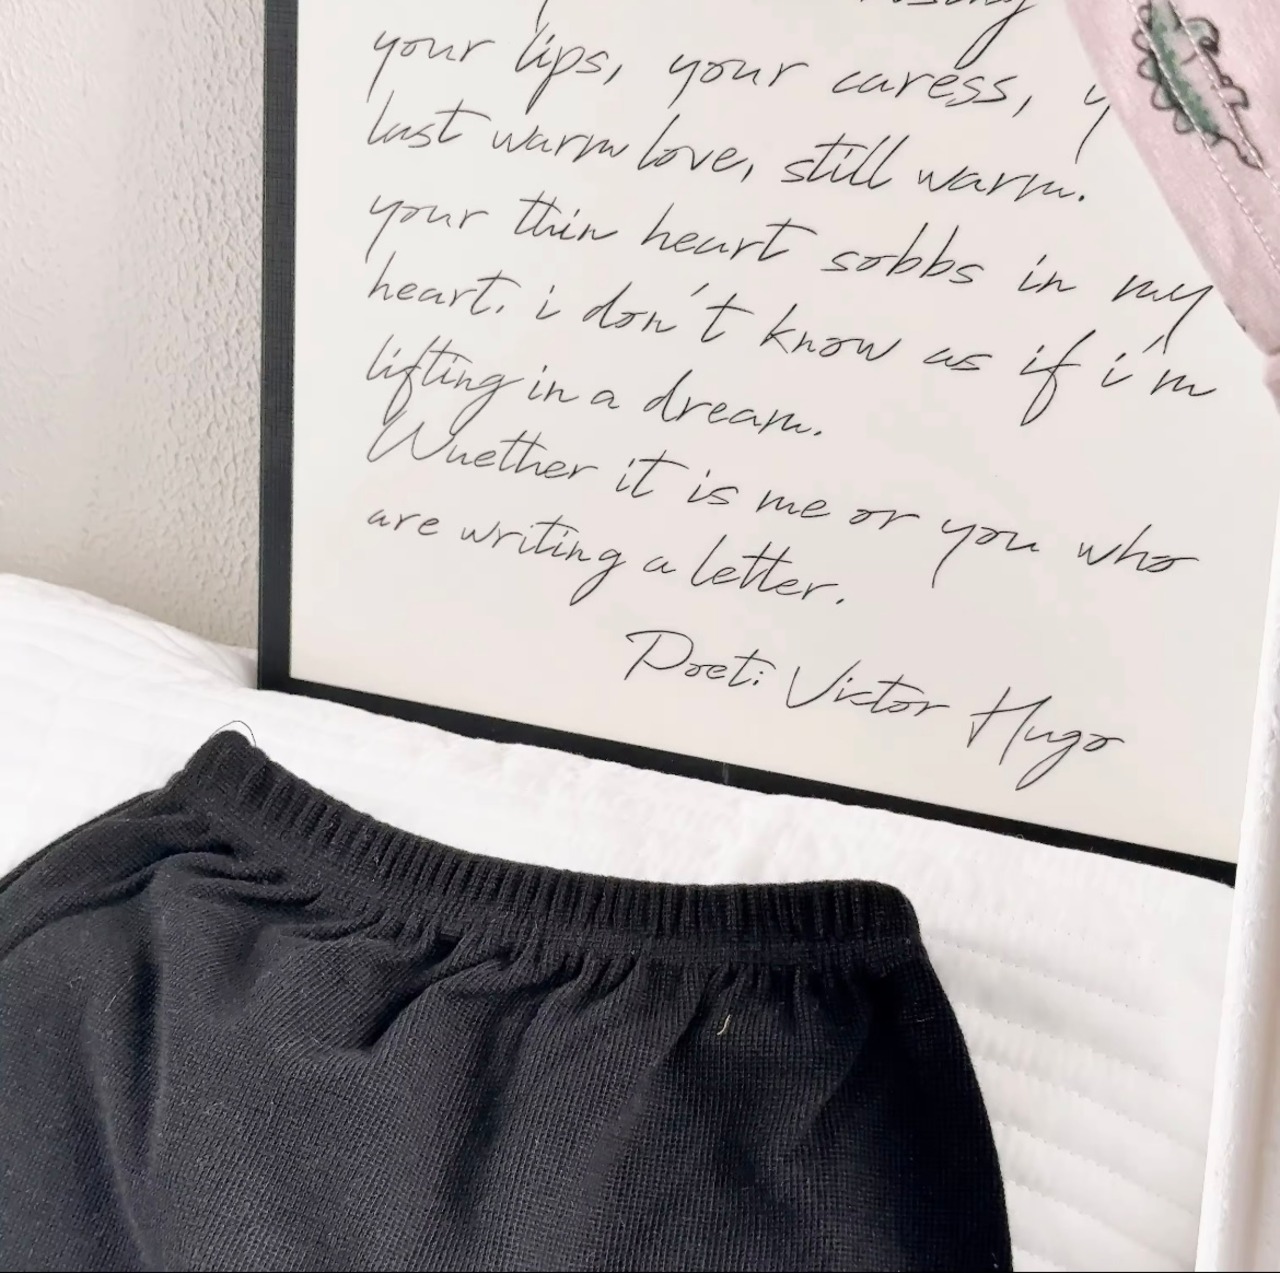 your lips, your caress,
last warm love, still warm.
your thin heart sobbs in my
heart. i don't know as if i'm
lifting in a dream.
Whether it is me or you who
are writing a letter.
Poet: Victor Hugo